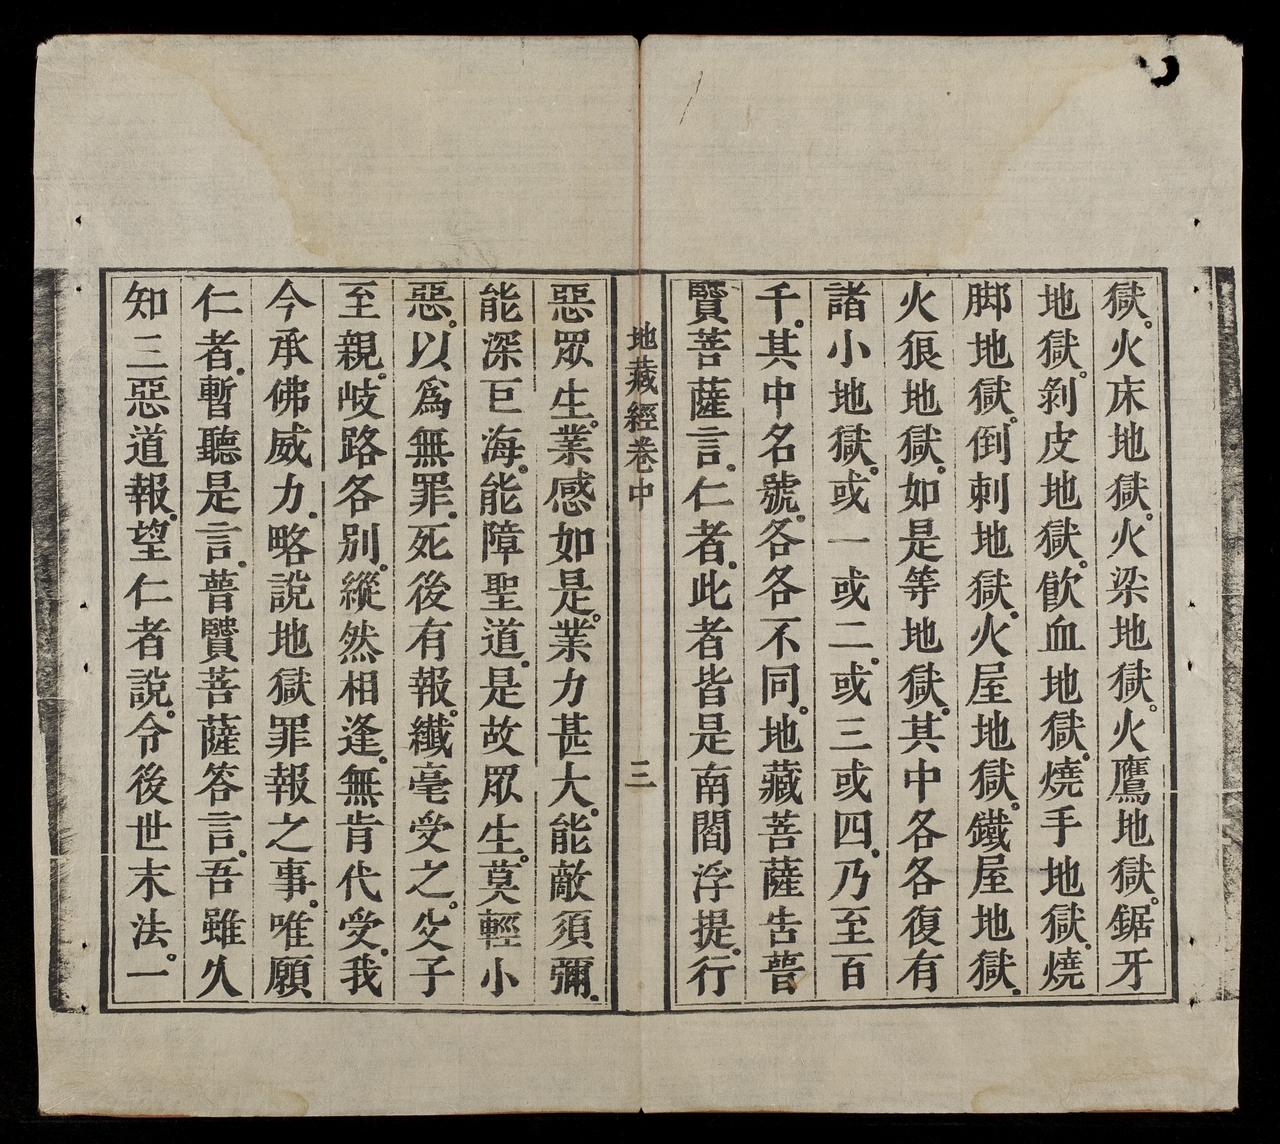 獄。火床地獄。火梁地獄。火鷹地獄。鋸牙
地獄。剥皮地獄。飲血地獄。燒手地獄。燒
脚地獄。倒刺地獄。火屋地獄。鐵屋地獄。
火狼地獄。如是等地獄。其中各各復有
諸小地獄。或一或二。或三或四。乃至百
千。其中名號。各各不同。地藏菩薩告普
賢菩薩言。仁者。此者皆是南閻浮提。行
地藏經卷中
三
惡眾生。業感如是。業力甚大。能敵須彌。
能深巨海。能障聖道。是故眾生。莫輕小
惡。以爲無罪。死後有報。纖毫受之。父子
至親。岐路各别。縱然相逢。無肯代受。我
今承佛威力。略說地獄罪報之事。唯願
仁者。暫聽是言。普賢菩薩答言。吾雖久
知三惡道報。望仁者說。令後世末法。一